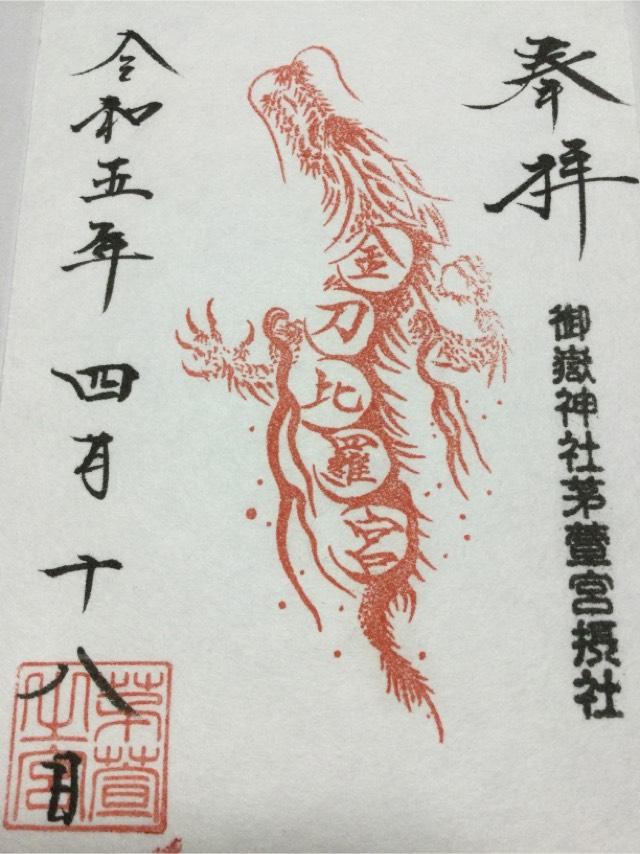 奉拝
御嶽神社茅萱宮摂社
金刀比羅宮
令和五年四月十八日
茅萱
之宮